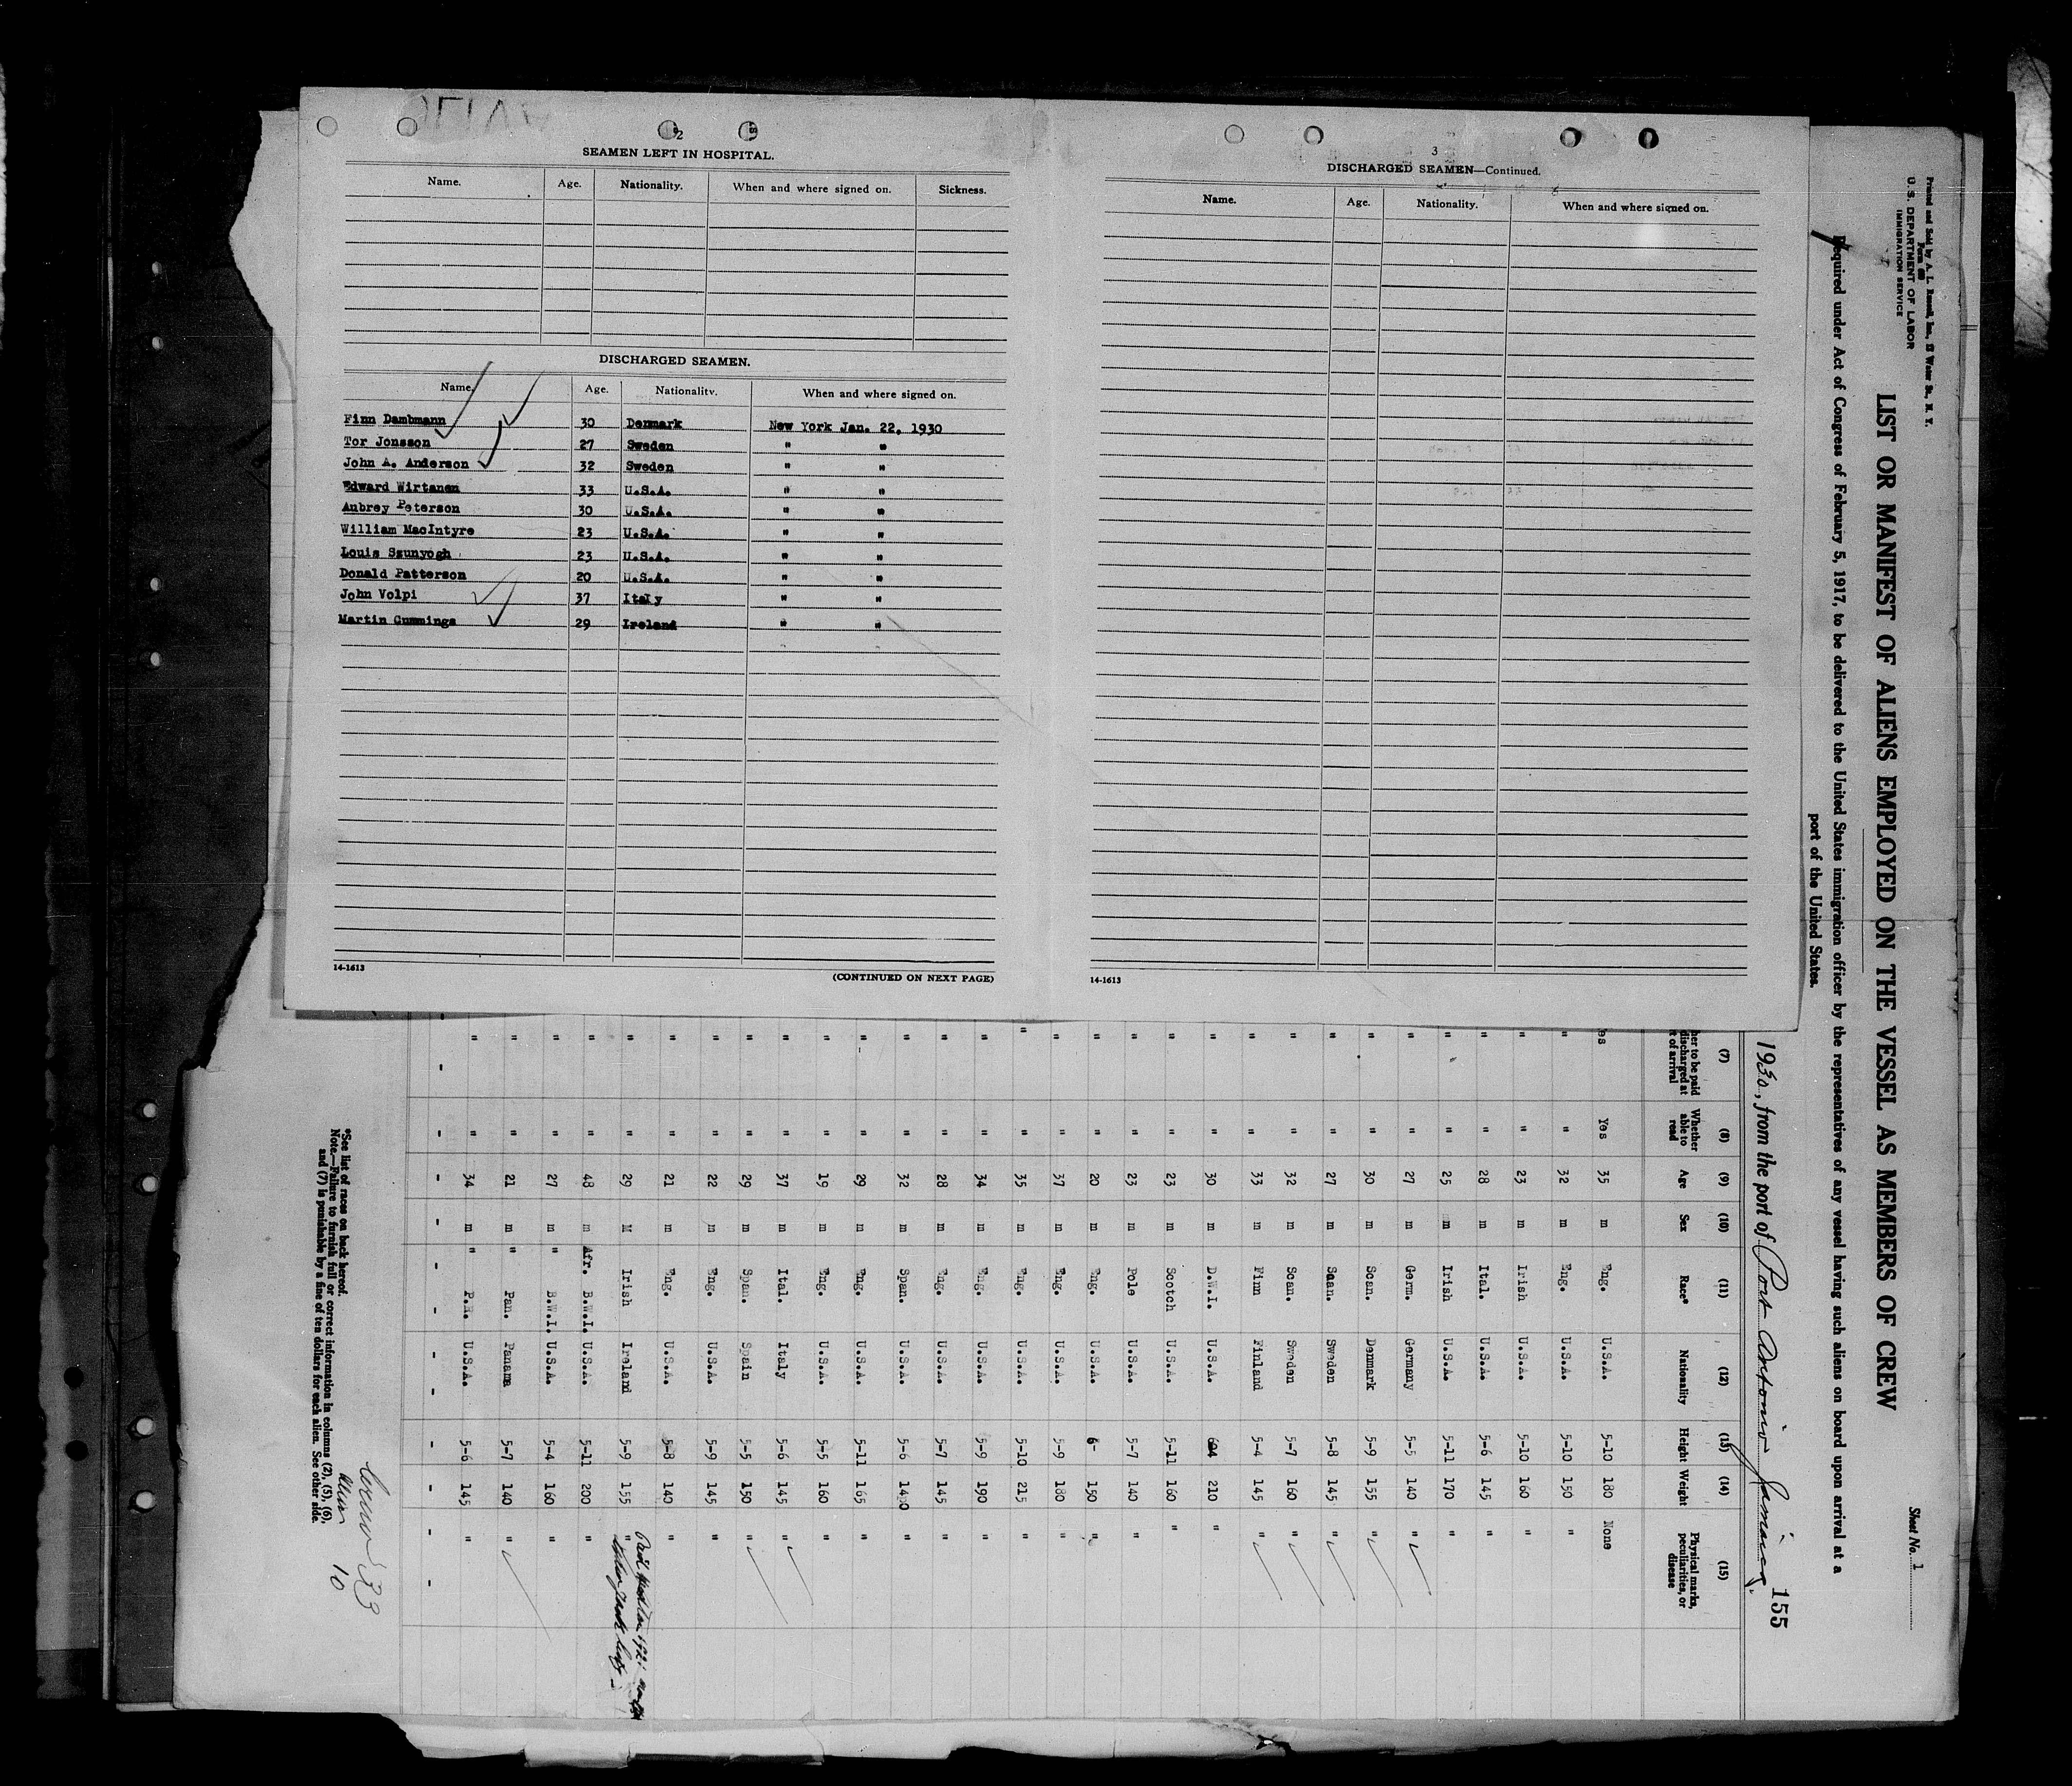 2
SEAMEN LEFT IN HOSPITAL.
Name. Age. Nationality. When and where signed on. Sickness.
DISCHARGED SEAMEN.
Name. Age. Nationality. When and where signed on.
Finn Dambmann 30 Denmark New York Jan. 22, 1930
Tor Jonsson 27 Sweden " "
John A. Anderson 32 Sweden " "
Edward Wirtanen 33 U.S.A. " "
Aubrey Peterson 30 U.S.A. " "
William MacIntyre 23 U.S.A. " "
Louis Szunyogh 23 U.S.A. " "
Donald Patterson 20 U.S.A. " "
John Volpi 37 Italy " "
Martin Cummings 29 Ireland " "
14-1613
(CONTINUED ON NEXT PAGE)
3
DISCHARGED SEAMEN—Continued.
Name. Age. Nationality. When and where signed on.
14-1613
Printed and Sold by A. L. Russell, Inc., Water St., N. Y.
Form
U. S. DEPARTMENT OF LABOR
IMMIGRATION SERVICE
Sheet No. 1
LIST OR MANIFEST OF ALIENS EMPLOYED ON THE VESSEL AS MEMBERS OF CREW
Required under Act of Congress of February 5, 1917, to be delivered to the United States immigration officer by the representatives of any vessel having such aliens on board upon arrival at a
port of the United States.
155
1930, from the port of Port Antonio Jamaica.
(7) (8) (9) (10) (11) (12) (13) (14) (15)
her to be paid discharged at t of arrival
Whether able to read
Age
Sex
Race*
Nationality
Height
Weight
Physical marks, peculiarities, or disease
es Yes 35 m Eng. U.S.A. 5-10 180 None
" " 32 m Eng. U.S.A. 5-10 150 "
" " 23 m Irish U.S.A. 5-10 160 "
" " 28 m Ital. U.S.A. 5-6 145 "
" " 25 m Irish U.S.A. 5-11 170 "
" " 27 m Germ. Germany 5-5 140 "
" " 30 m Scan. Denmark 5-9 155 "
" " 27 m Scan. Sweden 5-8 145 "
" " 32 m Scan. Sweden 5-7 160 "
" " 33 m Finn Finland 5-4 145 "
" " 30 m D.W.I. U.S.A. 6-4 210 "
" " 23 m Scotch U.S.A. 5-11 160 "
" " 23 m Pole U.S.A. 5-7 140 "
" " 20 m Eng. U.S.A. 6- 150 "
" " 37 m Eng. U.S.A. 5-9 180 "
" " 35 m Eng. U.S.A. 5-10 215 "
" " 34 m Eng. U.S.A. 5-9 190 "
" " 28 m Eng. U.S.A. 5-7 145 "
" " 32 m Span. U.S.A. 5-6 140 "
" " 29 m Eng. U.S.A. 5-11 165 "
" " 19 m Eng. U.S.A. 5-5 160 "
" " 37 m Ital. Italy 5-6 145 "
" " 29 m Span. Spain 5-5 150 "
" " 22 m Eng. U.S.A. 5-9 145 "
" " 21 m Eng. U.S.A. 5-8 140 "
" " 29 M Irish Ireland 5-9 155 "
" " 48 m Afr. B.W.I. U.S.A. 5-11 200 "
" " 27 m " B.W.I. U.S.A. 5-4 160 "
" " 21 m " Pan. Panama 5-7 140 "
" " 34 m " P.R. U.S.A. 5-6 145 "
- - - - - - - - -
*See list of races on back hereof.
Note.—Failure to furnish full or correct information in columns (2), (5), (6),
and (7) is punishable by a fine of ten dollars for each alien. See other side.
33
10